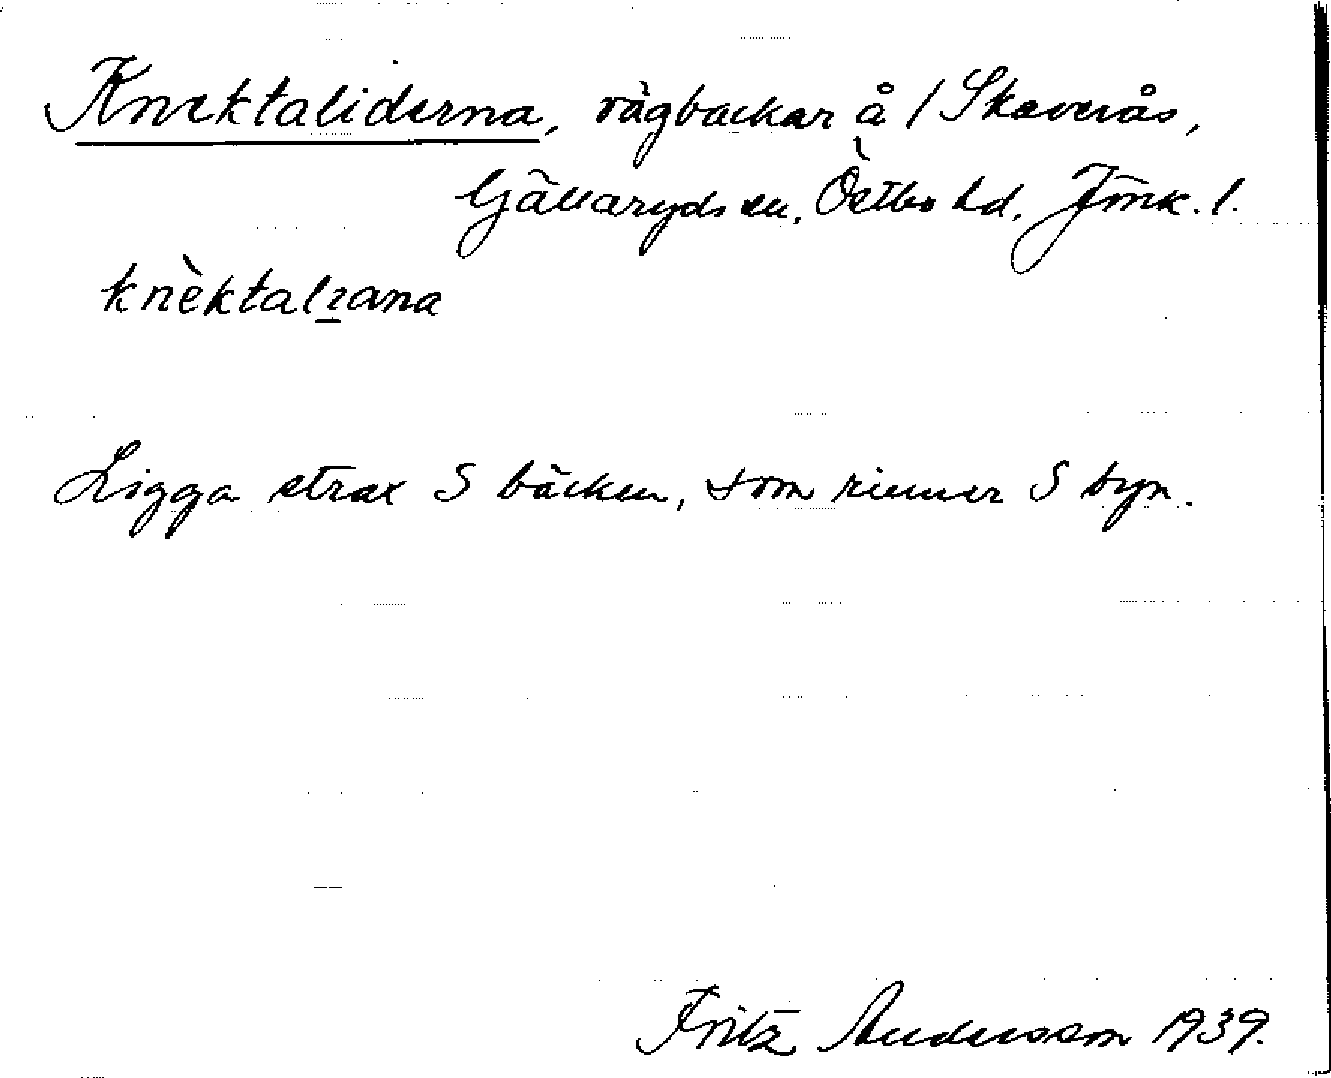 Knektaliderna, vägbackar å /Skaverås,
Gällaryds sn, Östbo hd, Jönk. l.
knèktalıana
Ligga strax S bäcken, som rinner S byn.
Fritz Andersson 1939.